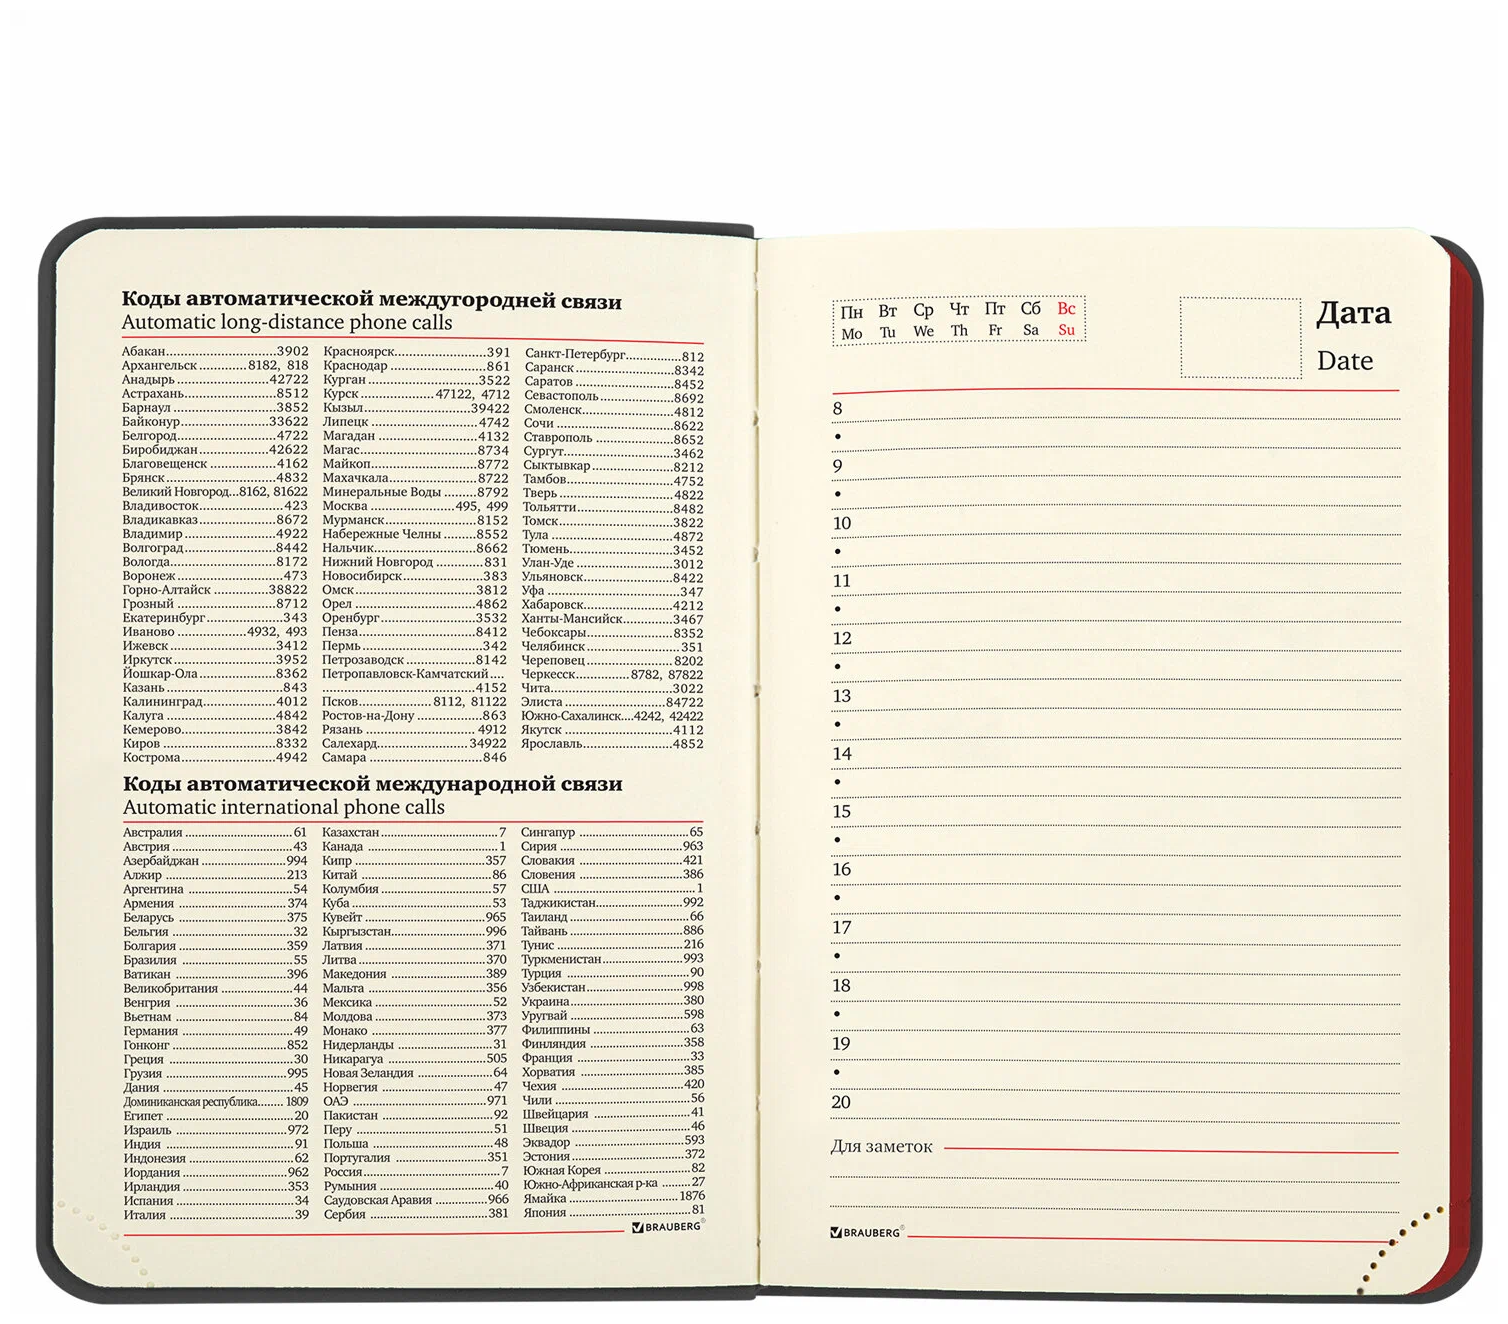 Коды автоматической междугородней связи
Automatic long-distance phone calls
Абакан....3902
Архангельск....8182, 818
Анадырь....42722
Астрахань....8512
Барнаул....3852
Байконур....33622
Белгород....4722
Биробиджан....42622
Благовещенск....4162
Брянск....4832
Великий Новгород...8162, 81622
Владивосток....423
Владикавказ....8672
Владимир....4922
Волгоград....8442
Вологда....8172
Воронеж....473
Горно-Алтайск....38822
Грозный....8712
Екатеринбург....343
Иваново....4932, 493
Ижевск....3412
Иркутск....3952
Йошкар-Ола....8362
Казань....843
Калининград....4012
Калуга....4842
Кемерово....3842
Киров....8332
Кострома....4942
Красноярск....391
Краснодар....861
Курган....3522
Курск....47122, 4712
Кызыл....39422
Липецк....4742
Магадан....4132
Магас....8734
Майкоп....8772
Махачкала....8722
Минеральные Воды....8792
Москва....495, 499
Мурманск....8152
Набережные Челны....8552
Нальчик....8662
Нижний Новгород....831
Новосибирск....383
Омск....3812
Орел....4862
Оренбург....3532
Пенза....8412
Пермь....342
Петрозаводск....8142
Петропавловск-Камчатский....
....4152
Псков....8112, 81122
Ростов-на-Дону....863
Рязань....4912
Салехард....34922
Самара....846
Санкт-Петербург....812
Саранск....8342
Саратов....8452
Севастополь....8692
Смоленск....4812
Сочи....8622
Ставрополь....8652
Сургут....3462
Сыктывкар....8212
Тамбов....4752
Тверь....4822
Тольятти....8482
Томск....3822
Тула....4872
Тюмень....3452
Улан-Уде....3012
Ульяновск....8422
Уфа....347
Хабаровск....4212
Ханты-Мансийск....3467
Чебоксары....8352
Челябинск....351
Череповец....8202
Черкесск....8782, 87822
Чита....3022
Элиста....84722
Южно-Сахалинск....4242, 42422
Якутск....4112
Ярославль....4852
Коды автоматической международной связи
Automatic international phone calls
Австралия....61
Австрия....43
Азербайджан....994
Алжир....213
Аргентина....54
Армения....374
Беларусь....375
Бельгия....32
Болгария....359
Бразилия....55
Ватикан....396
Великобритания....44
Венгрия....36
Вьетнам....84
Германия....49
Гонконг....852
Греция....30
Грузия....995
Дания....45
Доминиканская республика....1809
Египет....20
Израиль....972
Индия....91
Индонезия....62
Иордания....962
Ирландия....353
Испания....34
Италия....39
Казахстан....7
Канада....1
Кипр....357
Китай....86
Колумбия....57
Куба....53
Кувейт....965
Кыргызстан....996
Латвия....371
Литва....370
Македония....389
Мальта....356
Мексика....52
Молдова....373
Монако....377
Нидерланды....31
Никарагуа....505
Новая Зеландия....64
Норвегия....47
ОАЭ....971
Пакистан....92
Перу....51
Польша....48
Португалия....351
Россия....7
Румыния....40
Саудовская Аравия....966
Сербия....381
Сингапур....65
Сирия....963
Словакия....421
Словения....386
США....1
Таджикистан....992
Таиланд....66
Тайвань....886
Тунис....216
Туркменистан....993
Турция....90
Узбекистан....998
Украина....380
Уругвай....598
Филиппины....63
Финляндия....358
Франция....33
Хорватия....385
Чехия....420
Чили....56
Швейцария....41
Швеция....46
Эквадор....593
Эстония....372
Южная Корея....82
Южно-Африканская р-ка....27
Ямайка....1876
Япония....81
BRAUBERG®
Пн Вт Ср Чт Пт Сб Вс
Mo Tu We Th Fr Sa Su
Дата
Date
8
•
9
•
10
•
11
•
12
•
13
•
14
•
15
•
16
•
17
•
18
•
19
•
20
Для заметок
BRAUBERG®